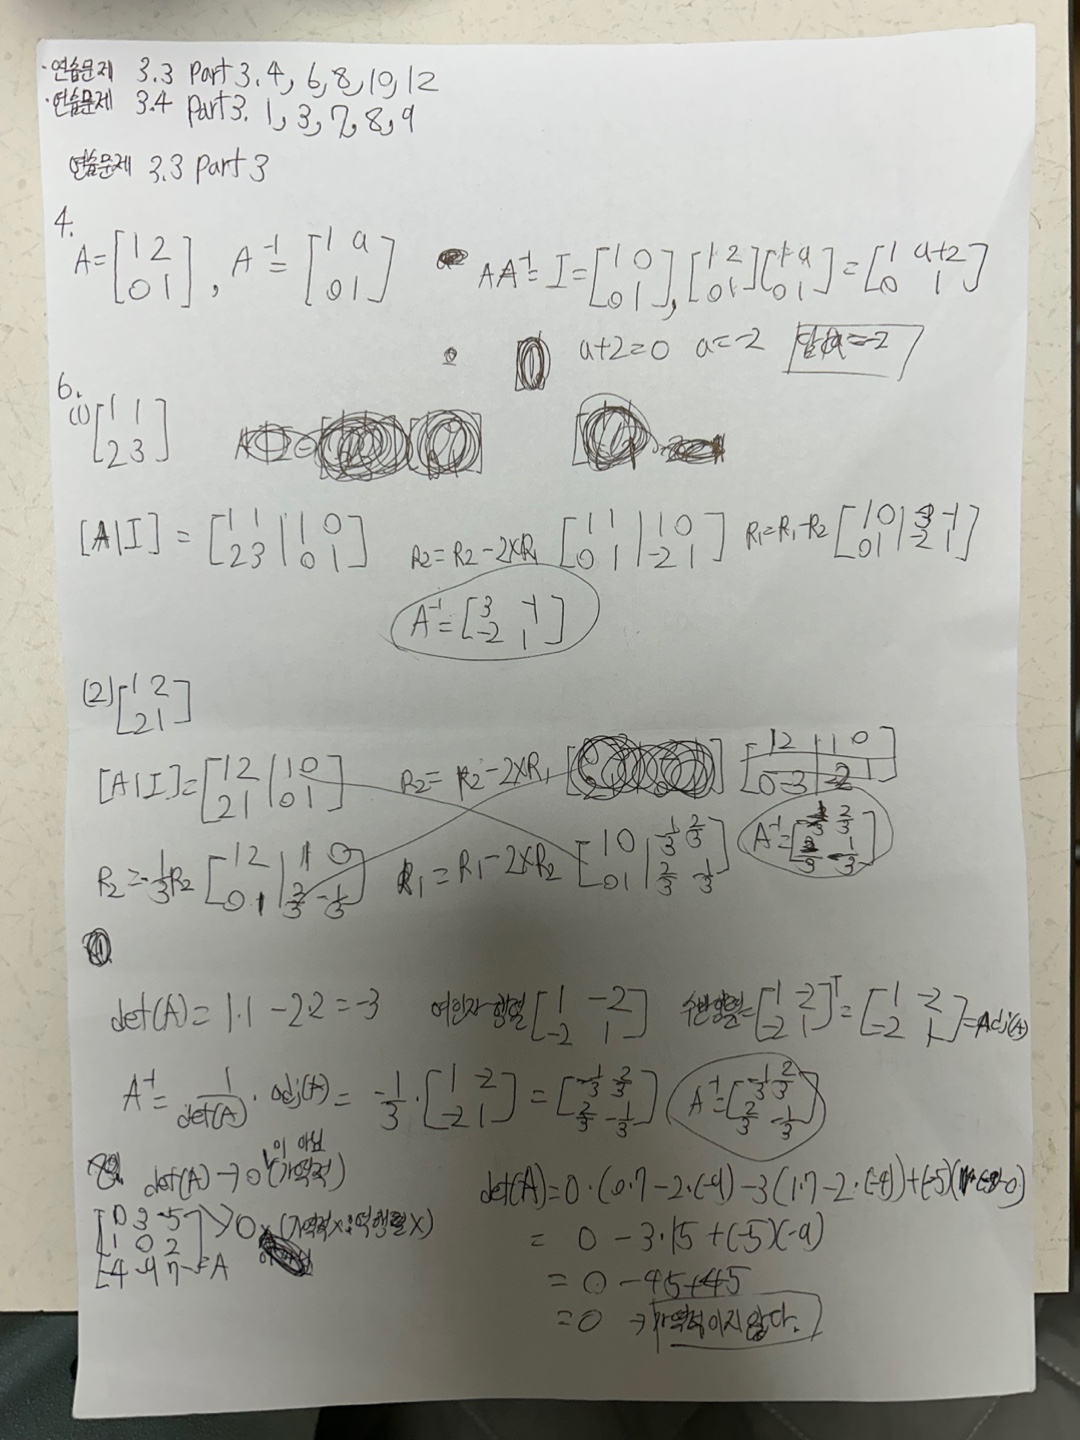 ·연습문제 3.3 Part 3. 4, 6, 8, 10, 12
·연습문제 3.4 Part 3. 1, 3, 7, 8, 9
연습문제 3.3 Part 3
4.
A=[1 2 0 1], A⁻¹=[1 a 0 1] AA⁻¹=I=[1 0 0 1], [1 2 0 1][1 a 0 1]=[1 a+2 0 1]
a+2=0 a=-2 답 a=-2
6.
(1) [1 1 2 3]
[A|I] = [1 1 | 1 0 2 3 | 0 1] R₂=R₂-2×R₁ [1 1 | 1 0 0 1 | -2 1] R₁=R₁-R₂ [1 0 | 3 -1 0 1 | -2 1]
A⁻¹=[3 -1 -2 1]
(2) [1 2 2 1]
[A|I]=[1 2 | 1 0 2 1 | 0 1] R₂= R₂-2×R₁ [1 2 | 1 0 0 -3 | -2 1]
R₂=-1/3R₂ [1 2 | 1 0 0 1 | 2/3 -1/3] R₁=R₁-2×R₂ [1 0 | -1/3 2/3 0 1 | 2/3 -1/3] A⁻¹=[-1/3 2/3 2/3 -1/3]
det(A)=1·1-2·2=-3 여인자행렬 [1 -2 -2 1] 수반행렬=[1 -2 -2 1]ᵀ=[1 -2 -2 1]=Adj(A)
A⁻¹=1/det(A)·adj(A)=-1/3·[1 -2 -2 1]=[-1/3 2/3 2/3 -1/3] A⁻¹=[-1/3 2/3 2/3 -1/3]
8. det(A)→0이 아님(가역적) det(A)=0·(0·7-2·(-9)-3(1·7-2·(-4))+(-5)(
[0 3 -5 1 0 2 -4 -9 7]=A →0 (가역적X:역행렬X)
= 0-3·15+(-5)(-9)
= 0-45+45
=0 → 가역적이지 않다.